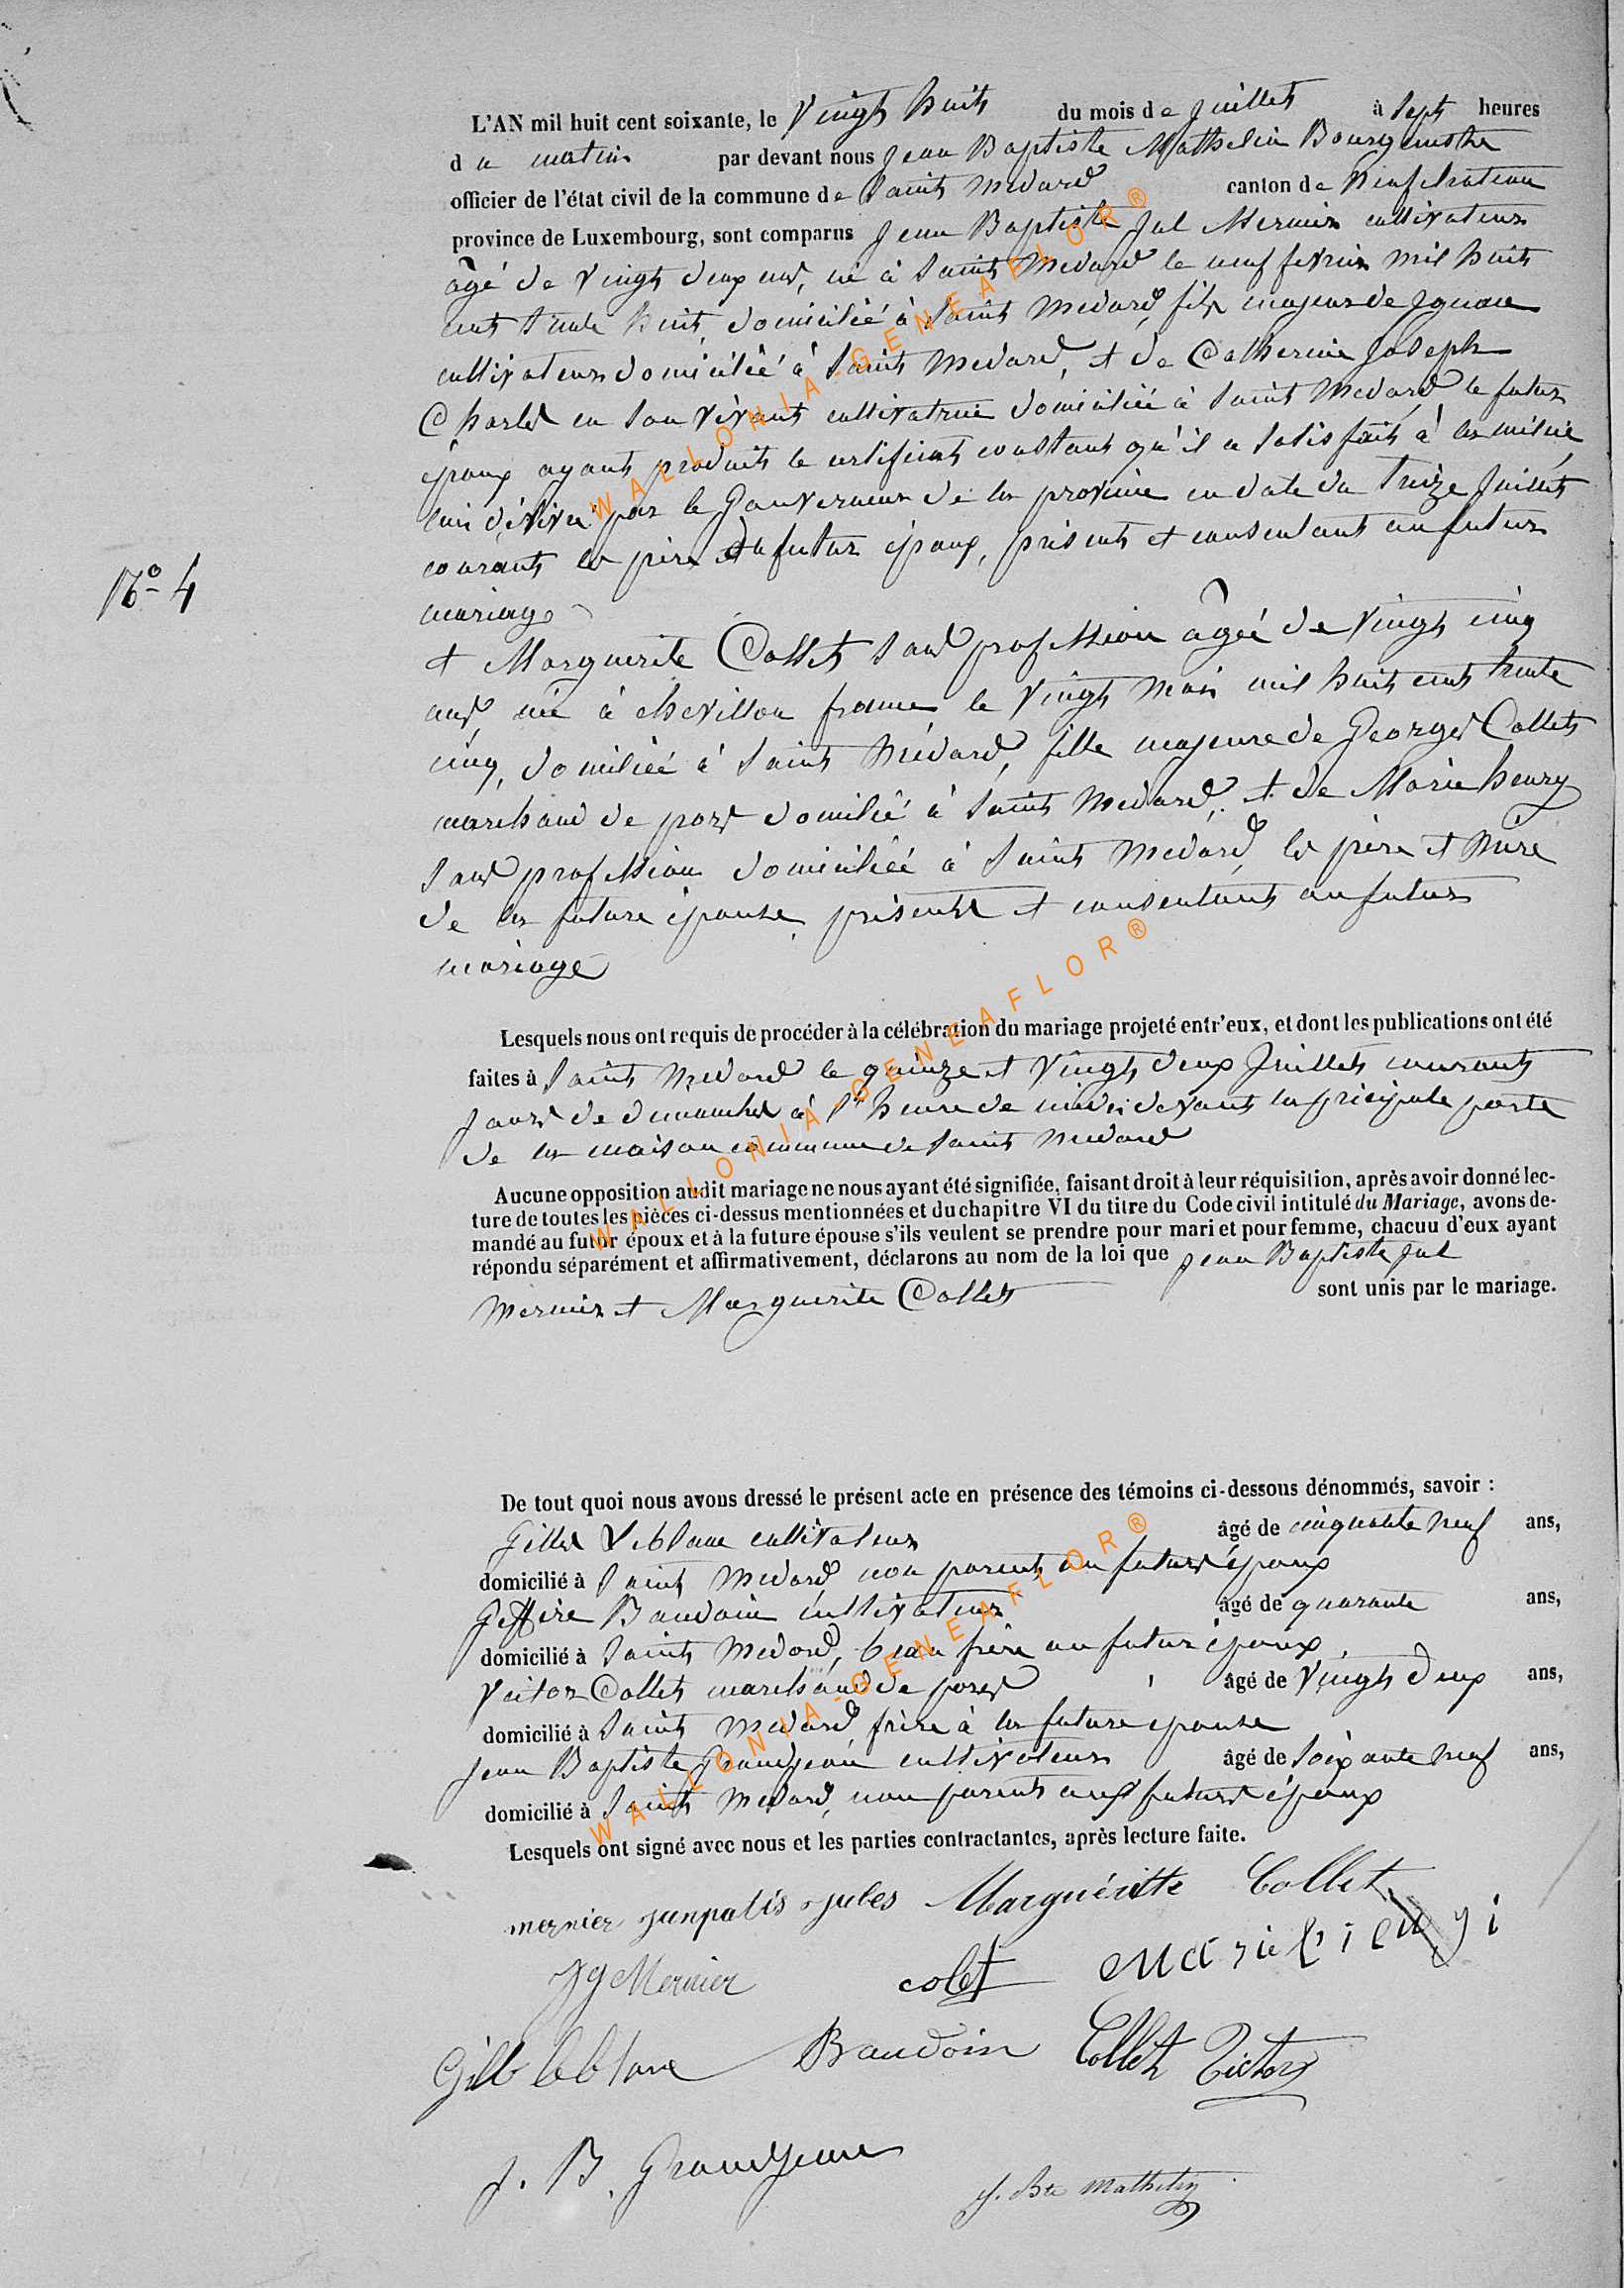 L'AN mil huit cent soixante, le Vingt huit du mois de juillet à Sept heures
du matin par devant nous Jean Baptiste Mathelin Bourgmestre
officier de l'état civil de la commune de Saint Medard canton de Neufchateau
province de Luxembourg, sont comparus Jean Baptiste Jul Mernier cultivateur
âgé de Vingt deux ans, né à Saint Medard le neuf fevrier mil huit
cent trente huit, domicilié à Saint Medard, fils majeur de Ignace
cultivateur domicilié à Saint Medard, et de Catherine Joseph
Charles en son vivant cultivatrice domiciliée à Saint Medard le futur
époux ayant produit le certificat constant qu'il a satisfait à la milice
lui délivré par le Gouverneur de la province en date du treize Juillet
courant le père du futur époux, présent et consentant au futur
N° 4
mariage
et Marguerite Collet sans profession âgée de Vingt cinq
ans née à chevillon france le Vingt Mai mil huit cent trente
cinq, domiliée à Saint Médard, fille majeure de Georges Collet
marchand de porc domilié à Saint Medard, et de Marie henry
sans profession domiciliée à Saint Medard les père et Mère
de la future épouse présents et consentants au futur
mariage
Lesquels nous ont requis de procéder à la célébration du mariage projeté entr'eux, et dont les publications ont été
faites à Saint Medard le quinze et Vingt deux Juillet courant
Jours de dimanches à l'heure de midi devant la pricipale porte
de la maison commune de Saint Medard
Aucune opposition audit mariage ne nous ayant été signifiée, faisant droit à leur réquisition, après avoir donné lec-
ture de toutes les pièces ci-dessus mentionnées et du chapitre VI du titre du Code civil intitulé du Mariage, avons de-
mandé au futur époux et à la future épouse s'ils veulent se prendre pour mari et pour femme, chacuu d'eux ayant
répondu séparément et affirmativement, déclarons au nom de la loi que Jean Baptiste Jul
Mernier et Marguerite Collet sont unis par le mariage.
De tout quoi nous avons dressé le présent acte en présence des témoins ci-dessous dénommés, savoir :
Gilles Leblanc cultivateur âgé de cinquante neuf ans,
domicilié à Saint Medard, non parent au futurs époux
Baudoin cultivateur âgé de quarante ans,
domicilié à Saint Medard, beau frère au futur époux
Victor Collet marchand de porcs âgé de Vingt deux ans,
domicilié à Saint Medard frère à la future epouse
Jean Baptiste Grandjean cultivateur âgé de Soixante neuf ans,
domicilié à Saint Medard, non parent aux futurs époux
Lesquels ont signé avec nous et les parties contractantes, après lecture faite.
mernier janpatis jules Marguéritte Collet
Jg Mernier colet marie
Gille leblanc Baudoin Collet Victor
J. B. Grandjean
J. Bte Mathelin
WALLONIA-GENEAFLOR®
WALLONIA-GENEAFLOR®
WALLONIA-GENEAFLOR®